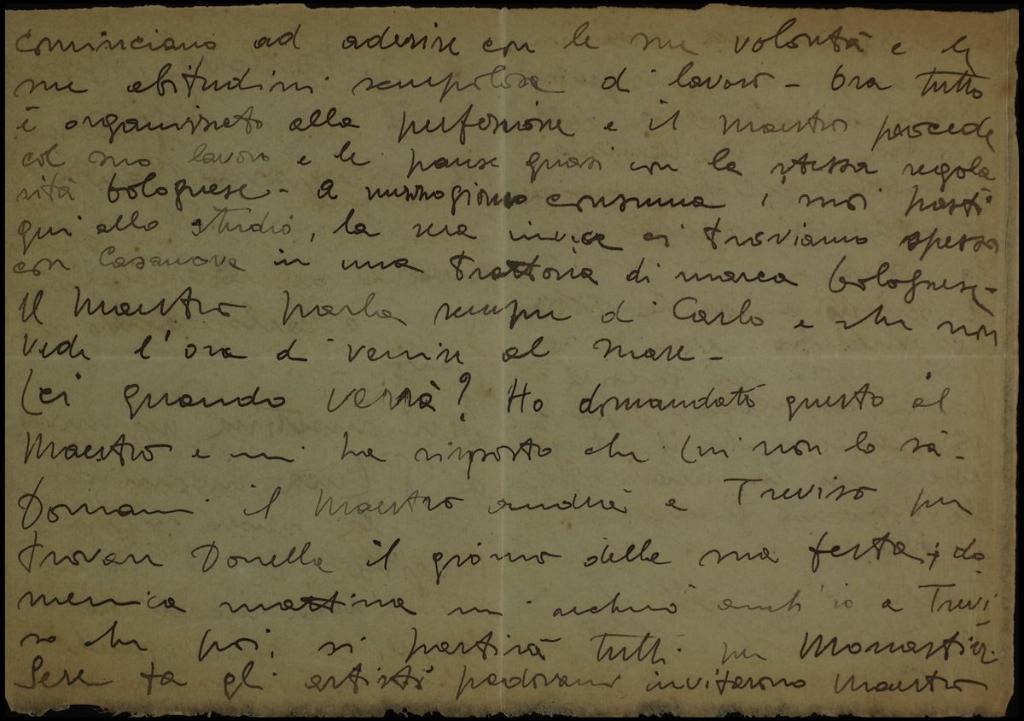 cominciano ad aderire con le sue volontà e le
sue abitudini scrupolose di lavoro - Ora tutto
è organizzato alla perfezione e il maestro procede
col suo lavoro e le pause quasi con la stessa regola
rità bolognese - a mezzogiorno consuma i suoi pasti
qui allo studio, la sera invece ci troviamo spesso
con Casanova in una trattoria di marca bolognese -
Il Maestro parla sempre di Carlo e che non
vede l'ora di venire al mare -
Lei quando verrà? Ho domandato questo al
Maestro e mi ha risposto che Lui non lo sà -
Domani il Maestro andrà a Treviso per
trovare Donella il giorno della sua festa, e do
menica mattina mi recherò anch'io a Trevi
so che poi, si partirà tutti per Monastier.
Sere fa gli artisti padovani invitarono Maestro